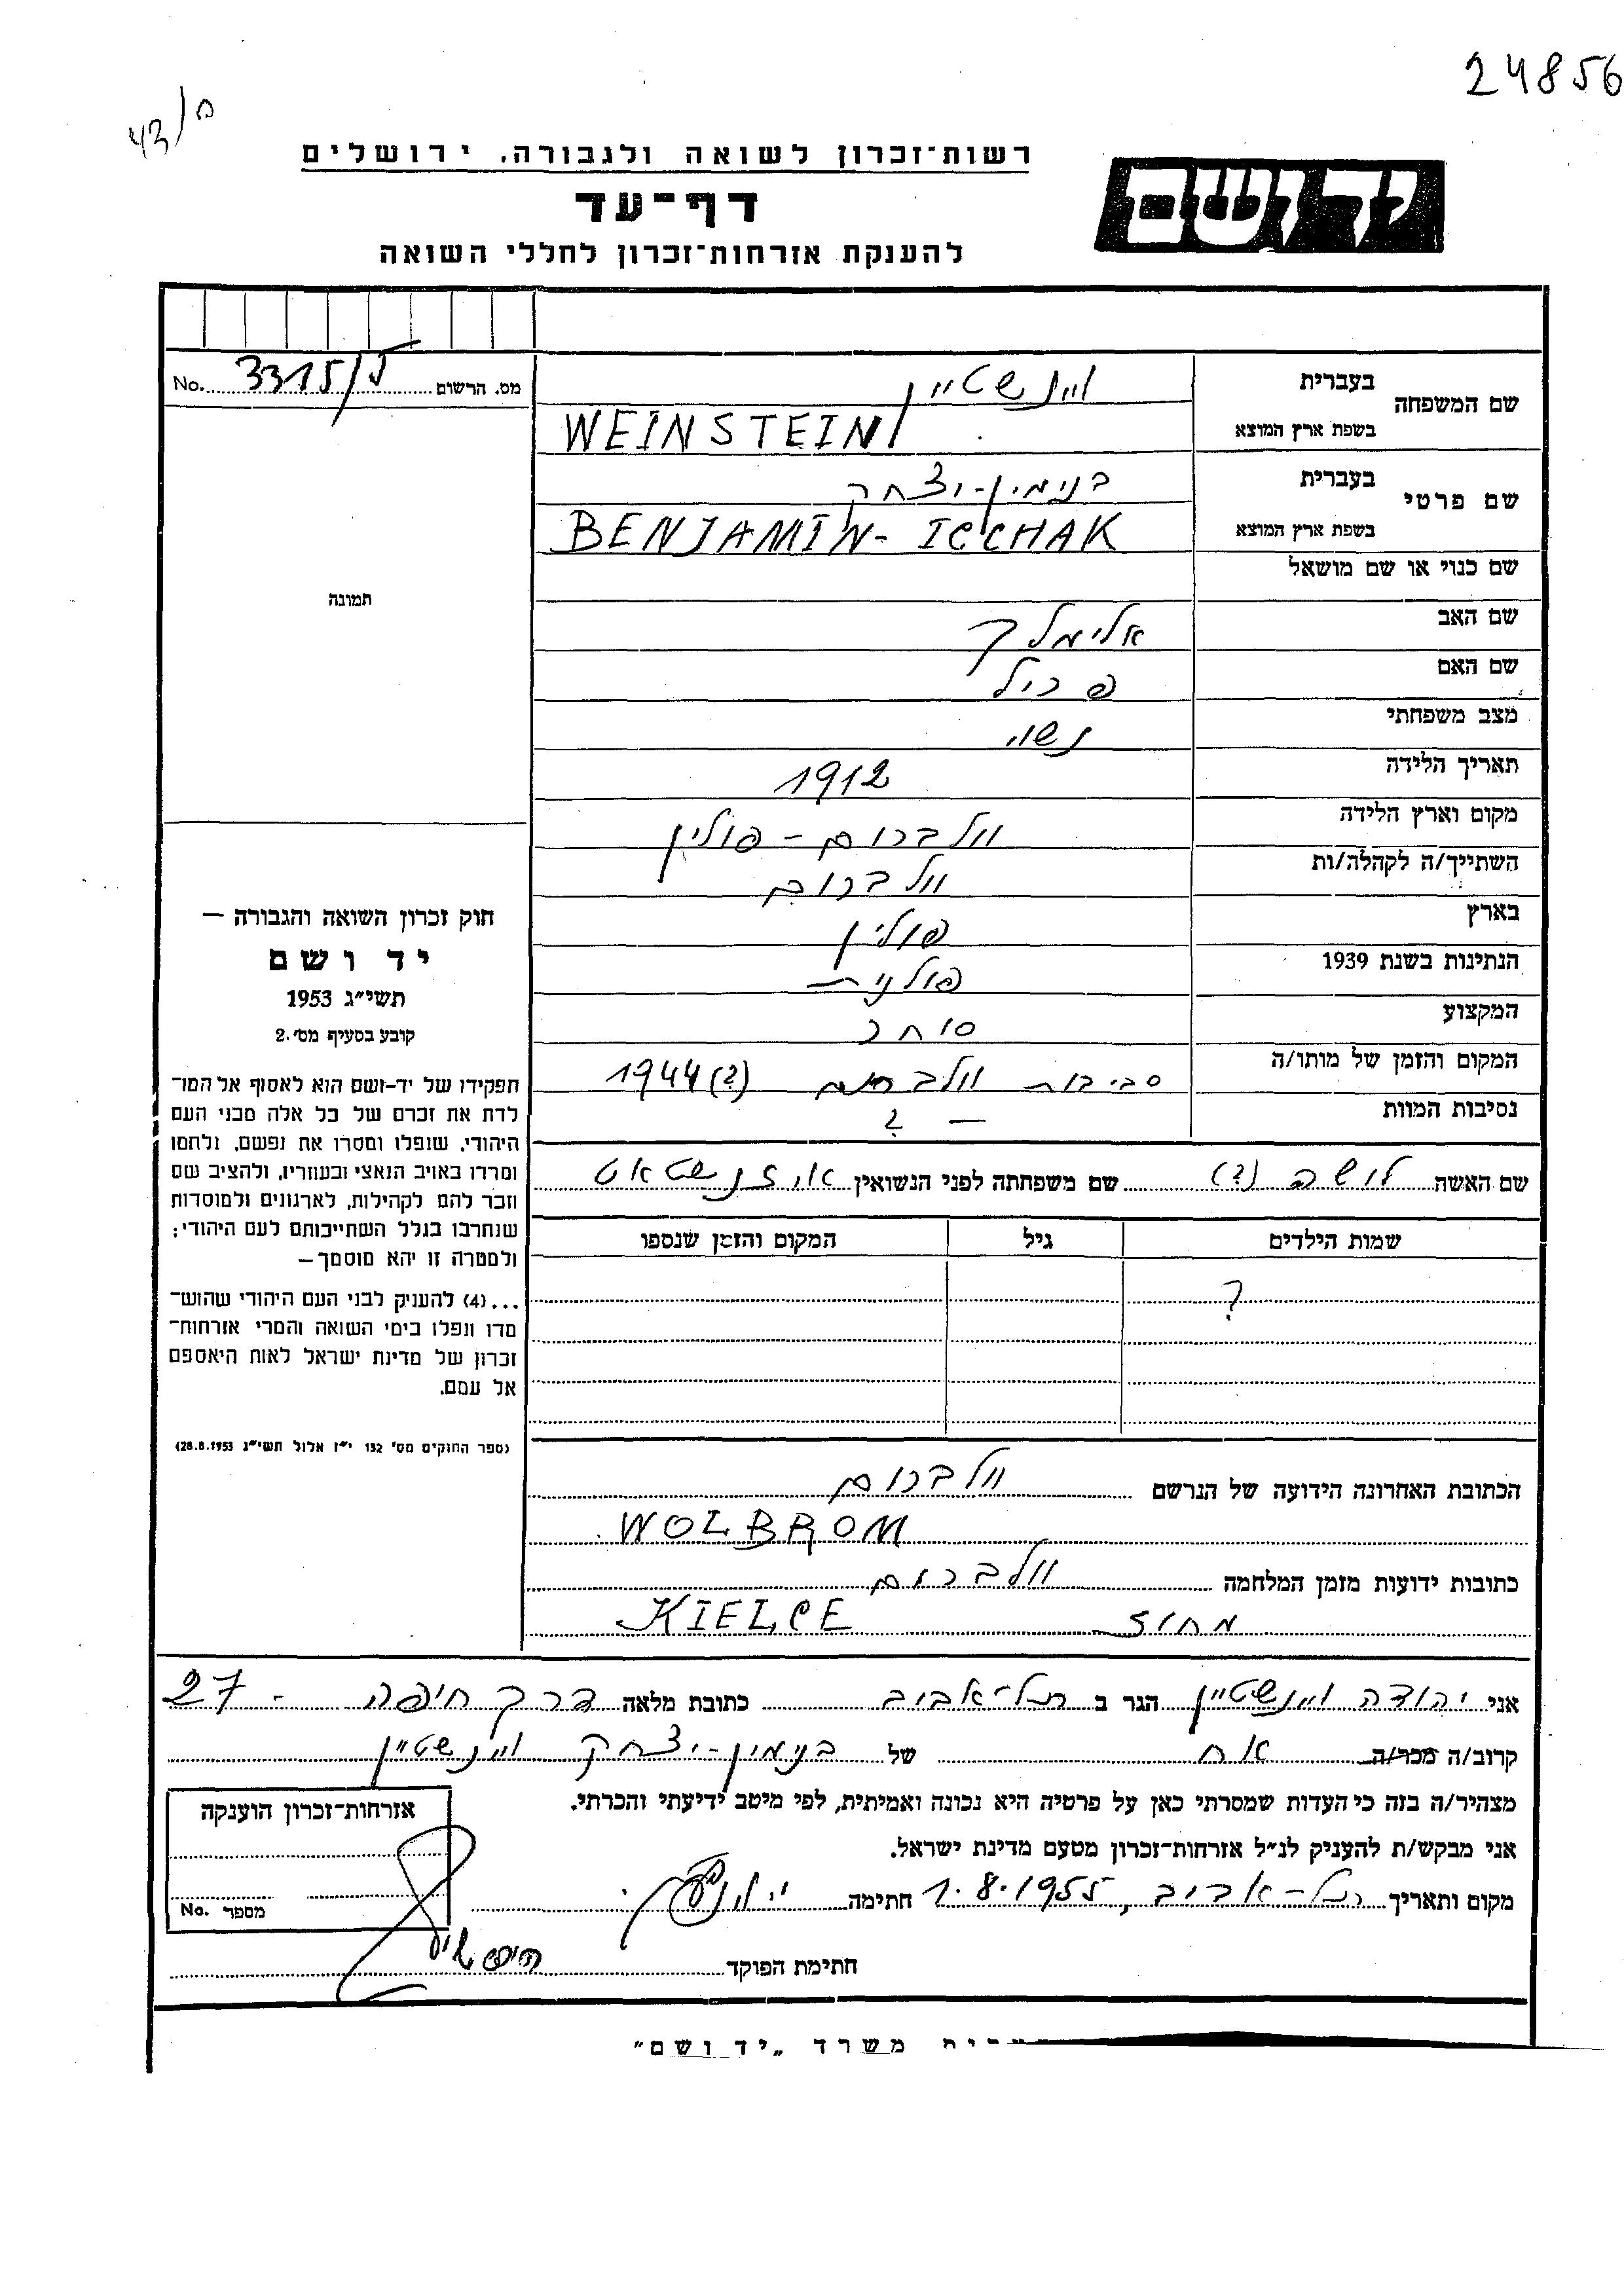 24856
43/ם
רשות־זכרון לשואה ולגבורה, ירושלים
יד ושם
דף־עד
להענקת אזרחות־זכרון לחללי השואה
מס. הרשום 3315/ No.
שם המשפחה בעברית ויינשטיין
בשפת ארץ המוצא WEINSTEIN
שם פרטי בעברית בנימין-יצחק
בשפת ארץ המוצא BENJAMIN-ICCHAK
שם כנוי או שם מושאל
שם האב אלימלך
שם האם
מצב משפחתי נשוי
תאריך הלידה 1912
מקום וארץ הלידה וולברום - פולין
השתייך/ה לקהלה/ות וולברום
בארץ פולין
הנתינות בשנת 1939 פולנית
המקצוע סוחר
המקום והזמן של מותו/ה סביבות וולברום 1944(?)
נסיבות המוות - ?
תמונה
חוק זכרון השואה והגבורה —
יד ושם
תשי״ג 1953
קובע בסעיף מס׳ 2.
תפקידו של יד-ושם הוא לאסוף אל המו־
לדת את זכרם של כל אלה מבני העם
היהודי, שנפלו ומסרו את נפשם, נלחמו
ומרדו באויב הנאצי ובעוזריו, ולהציב שם
וזכר להם לקהילות, לארגונים ולמוסדות
שנחרבו בגלל השתייכותם לעם היהודי;
ולמטרה זו יהא מוסמך—
...(4) להעניק לבני העם היהודי שהוש־
מדו ונפלו בימי השואה והמרי אזרחות־
זכרון של מדינת ישראל לאות היאספם
אל עמם.
(ספר החוקים מס׳ 132 י״ז אלול תשי״ג 28.8.1953)
שם האשה לושה (?) שם משפחתה לפני הנשואין אייזנשטאט
שמות הילדים גיל המקום והזמן שנספו
?
הכתובת האחרונה הידועה של הנרשם וולברום
WOLBROM
כתובות ידועות מזמן המלחמה וולברום
מחוז KIELCE
אני יהודה ויינשטיין הגר ב תל-אביב כתובת מלאה דרך חיפה - 27
קרוב/ה מכר/ה אח של בנימין-יצחק ויינשטיין
מצהיר/ה בזה כי העדות שמסרתי כאן על פרטיה היא נכונה ואמיתית, לפי מיטב ידיעתי והכרתי.
אני מבקש/ת להעניק לנ״ל אזרחות־זכרון מטעם מדינת ישראל.
מקום ותאריך תל-אביב, 1.8.1955 חתימה
אזרחות־זכרון הוענקה
מספר No.
חתימת הפוקד
משרד „יד ושם״